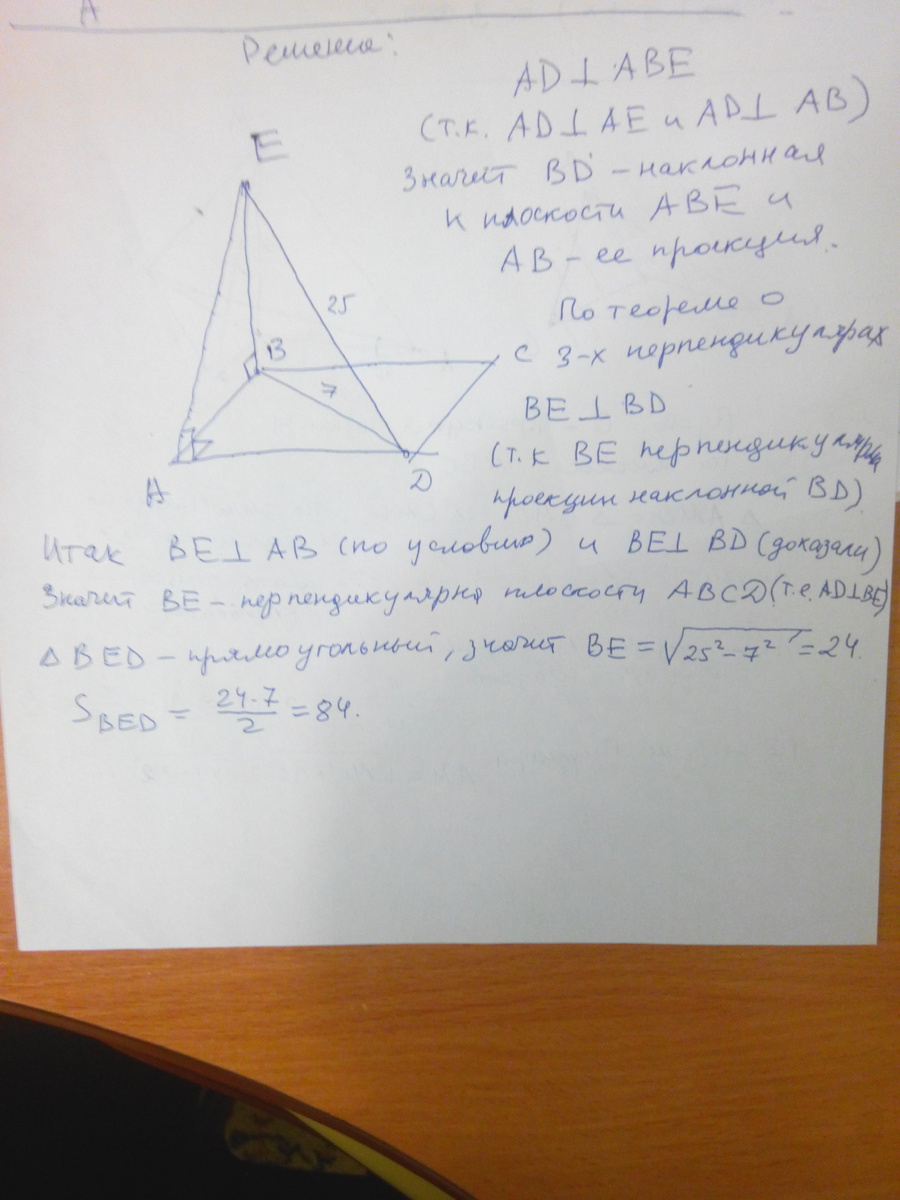 A
Решение:
AD⊥ ABE
(т.к. AD⊥AE и AD⊥ AB)
Значит BD – наклонная
к плоскости ABE и
AB – ее проекция.
По теореме о
3-х перпендикулярах
BE⊥BD
(т.к BE перпендикулярна
проекции наклонной BD)
E
25
B
C
7
A
D
Итак BE⊥AB (по условию) и BE⊥ BD (доказали)
Значит BE – перпендикулярна плоскости ABCD (т.е. AD⊥BE)
Δ BED – прямоугольный, значит BE = √25²–7² = 24.
S BED = 24·7/2 = 84.